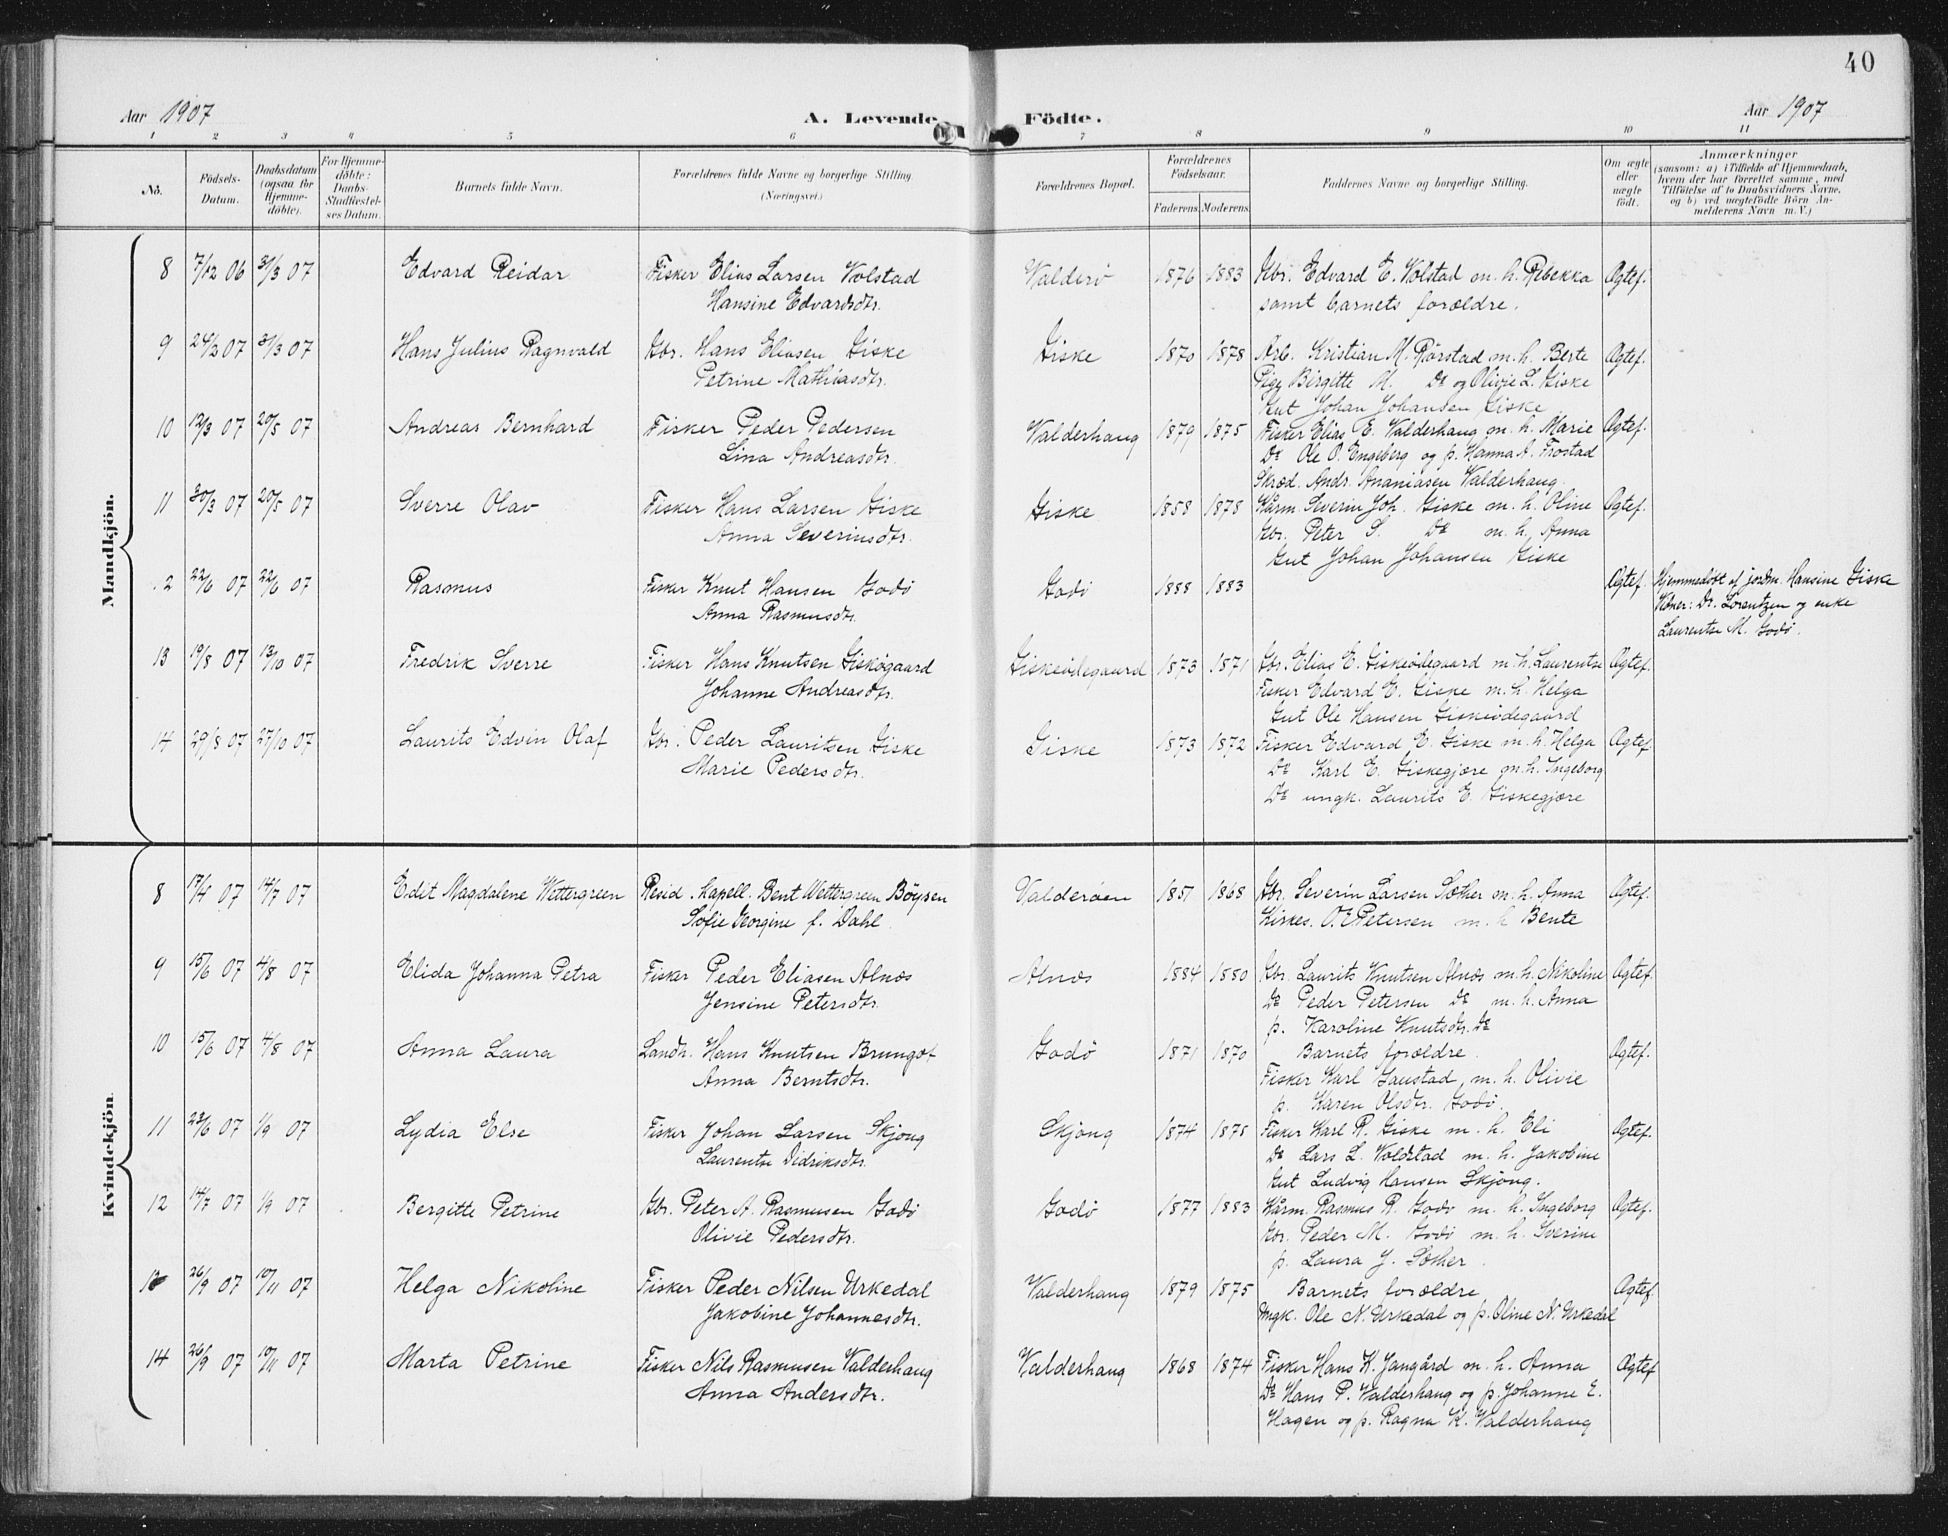 40
Aar 1907 A. Levende Födte. Aar 1907
1 2 3 4 5 6 7 8 9 10 11
No. Födsels-Datum. Daabsdatum (ogsaa for Hjemme-döbte). For Hjemme-döbte: Daabs-Stadfæstel-ses Datum. Barnets fulde Navn. Forældrenes fulde Navne og borgerlige Stilling. (Næringsvei.) Forældrenes Bopæl. Forældrenes Födselsaar. Faderens Moderens Faddernes Navne og borgerlige Stilling. Om ægte eller uægte födt. Anmærkninger (saasom: a) i Tilfælde af Hjemmedaab, hvem der har forrettet samme, med Tilföielse af to Daabsvidners Navne, og b) ved uægtefödte Börn An-melderens Navn m. V.)
Mandkjön.
8 7/12 06 31/3 07 Edvard Reidar Fisker Elias Larsen Volstad Valderö 1876 1883 Gbr. Edvard E. Volstad m. h. Rebekka Ægtef.
Hansine Edvardsdtr. samt barnets forældre.
9 24/2 07 31/3 07 Hans Julius Ragnvald Gbr. Hans Eliasen Giske Giske 1870 1878 Arb. Kristian M. Rörstad m. h. Berte Ægtef.
Petrine Mathiasdtr. Pige Birgitte M. Do og Olivie L. Giske
Gut Johan Johansen Giske
10 12/3 07 20/5 07 Andreas Bernhard Fisker Peder Pedersen Valderhaug 1879 1875 Fisker Elias E. Valderhaug m. h. Marie Ægtef.
Lina Andreasdtr. Do Ole O. Engeberg og p. Hanna A. Frostad
Skræd. Andr. Ananiasen Valderhaug.
11 30/3 07 20/5 07 Sverre Olav Fisker Hans Larsen Giske Giske 1858 1878 Kårm. Severin Joh. Giske m. h. Oline Ægtef.
Anna Severinsdtr. Gbr. Peter S. Do m. h. Anna
Gut Johan Johansen Giske
12 22/6 07 22/6 07 Rasmus Fisker Knut Hansen Godö Godö 1888 1883 Ægtef. Hjemmedöbt af jordm. Hansine Giske
Anna Rasmusdtr. Vidner: Dr. Lorentzen og enke
Laurentse M. Godö.
13 19/8 07 13/10 07 Fredrik Sverre Fisker Hans Knutsen Giskögaard Giskeödegaard 1873 1871 Gbr. Elias E. Giskeödegaard m. h. Laurentse Ægtef.
Johanne Andreasdtr. Fisker Edvard E. Giske m. h. Helga
Gut Ole Hansen Giskeödegaard
14 29/8 07 27/10 07 Laurits Edvin Olaf Gbr. Peder Lauritsen Giske Giske 1873 1872 Fisker Edvard E. Giske m. h. Helga Ægtef.
Marie Pedersdtr. Do Karl E. Giskegjære m. h. Ingeborg
Do ungk. Laurits E. Giskegjære
Kvindekjön.
8 17/4 07 14/7 07 Edit Magdalene Wettergreen Resid. Kapell. Bent Wettergreen Böysen Valderöen 1851 1868 Gbr. Severin Larsen Sæther m. h. Anna Ægtef.
Sofie Georgine f. Dahl. Kirkes. O. E. Petersen m. h. Bente
9 15/6 07 4/8 07 Elida Johanna Petra Fisker Peder Eliasen Alnæs Alnæs 1884 1880 Gbr. Laurits Knutsen Alnæs m. h. Nikoline Ægtef.
Jensine Petersdtr. Do Peder Petersen Do m. h. Anna
p. Karoline Knutsdtr. Do
10 15/6 07 4/8 07 Anna Laura Landh. Hans Knutsen Brungot Godö 1871 1870 Barnets forældre. Ægtef.
Anna Berntsdtr. Fisker Karl Gaustad, m. h. Olivie
p. Karen Olsdtr. Godö.
11 23/6 07 1/9 07 Lydia Else Fisker Johan Larsen Skjong Skjong 1874 1875 Fisker Karl R. Giske m. h. Eli Ægtef.
Laurentse Didriksdtr. Do Lars L. Voldstad m. h. Jakobine
Gut Ludvig Hansen Skjong.
12 14/7 07 1/9 07 Bergitte Petrine Gbr. Peter A. Rasmusen Godö Godö 1877 1883 Kårm. Rasmus R. Godö m. h. Ingeborg Ægtef.
Olivie Pedersdtr. Gbr. Peder M. Godö m. h. Sverine
p. Laura J. Sæther.
13 26/9 07 10/11 07 Helga Nikoline Fisker Peder Nilsen Urkedal Valderhaug 1879 1875 Barnets forældre Ægtef.
Jakobine Johannesdtr. Ungk. Ole N. Urkedal og p. Oline N. Urkedal
14 26/9 07 10/11 07 Marta Petrine Fisker Nils Rasmusen Valderhaug Valderhaug 1868 1874 Fisker Hans K. Jangård m. h. Anna Ægtef
Anna Andersdtr. Do Hans P. Valderhaug og p. Johanne E.
Hagen og p. Ragna K. Valderhaug